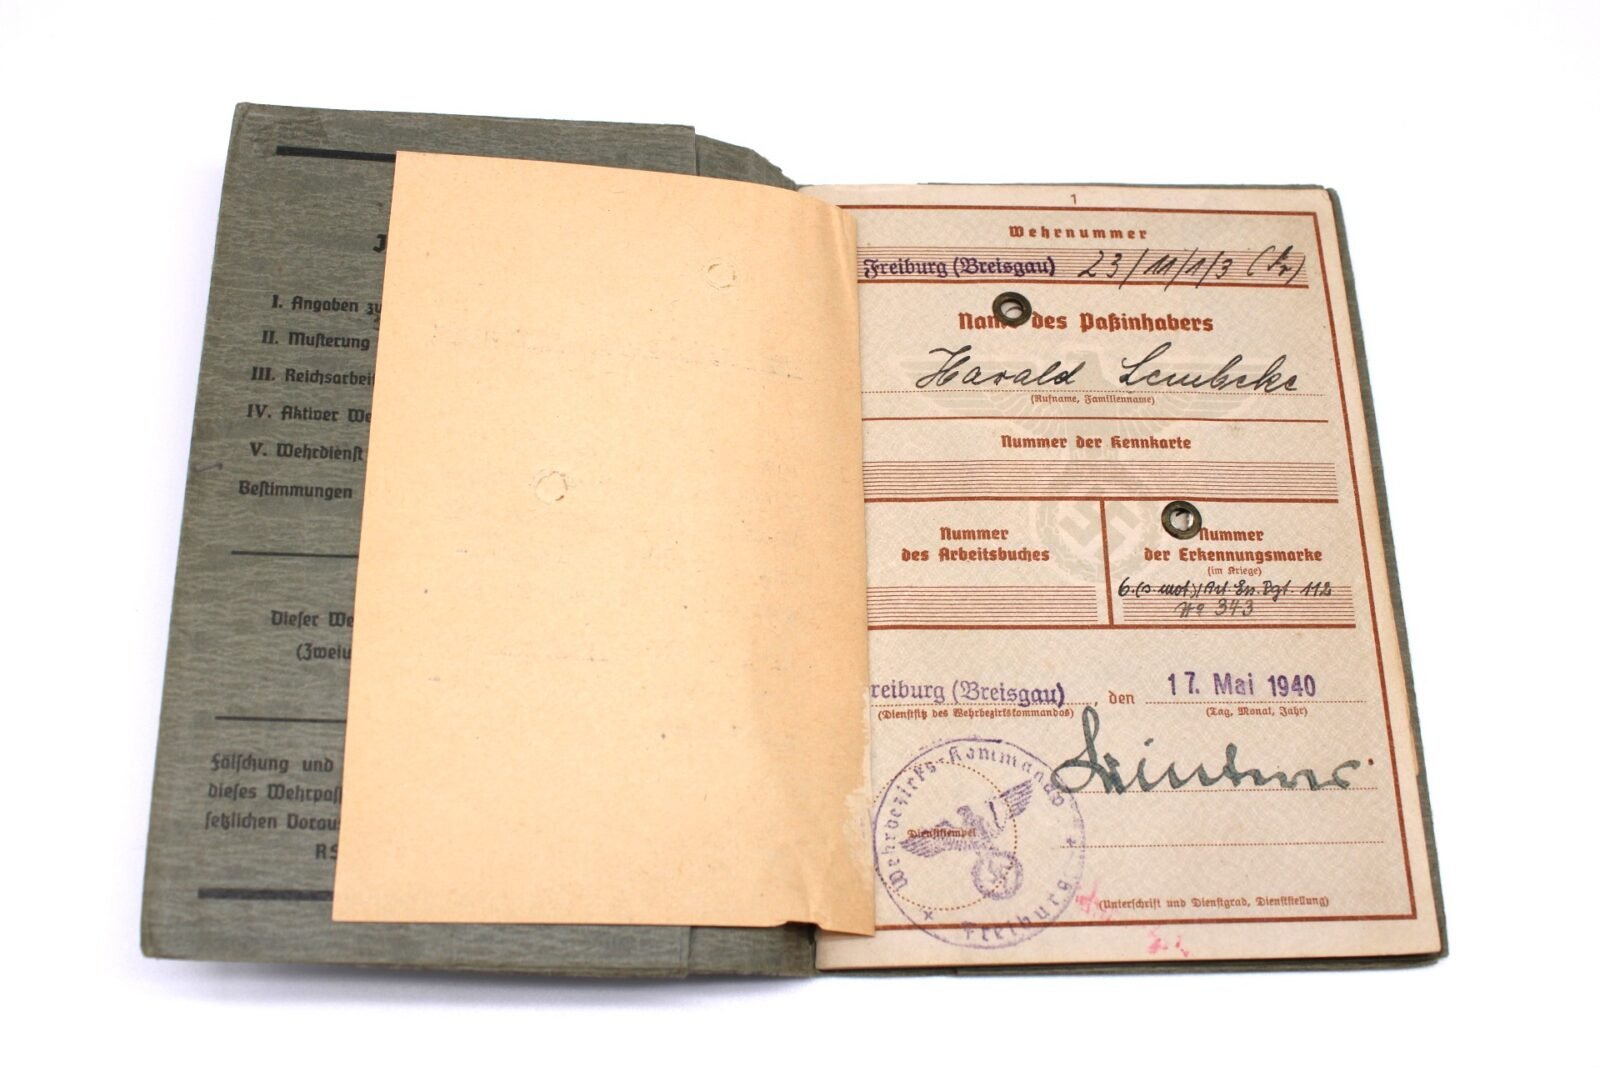 I. Angaben zu
II. Musterung
III. Reichsarbei
IV. Aktiver We
V. Wehrdienst
Bestimmungen
Dieser We
(Zweiu
Fälschung und
dieses Wehrpaß
setzlichen Voraus
RS
1
Wehrnummer
Freiburg (Breisgau) 23/11/1/3 (Fr)
Name des Paßinhabers
Harald Lembcke
(Rufname, Familienname)
Nummer der Kennkarte
Nummer
des Arbeitsbuches
Nummer
der Erkennungsmarke
(im Kriege)
6.(s.mot)/Art. Ers. Rgt. 112
No 343
reiburg (Breisgau), den 17. Mai 1940
(Dienstsitz des Wehrbezirkskommandos) (Tag, Monat, Jahr)
Wehrbezirks-Kommando
Freiburg
Dienststempel
(Unterschrift und Dienstgrad, Dienststellung)